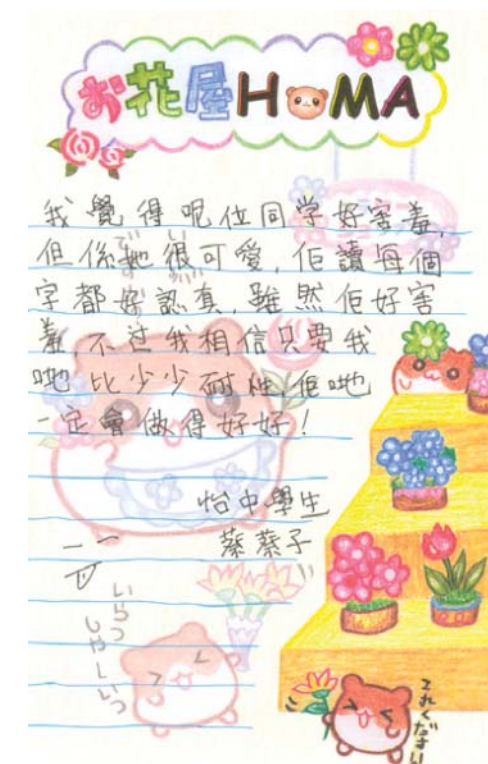 お花屋HOMA
我覺得呢位同学好害羞,
但係她很可愛,佢讀每個
字都好認真,雖然佢好害
羞,不过我相信只要我
哋比少少耐性,佢哋
一定會做得好好!
怡中學生
蔡蔡子
いらっ
しゃーいっ
これください